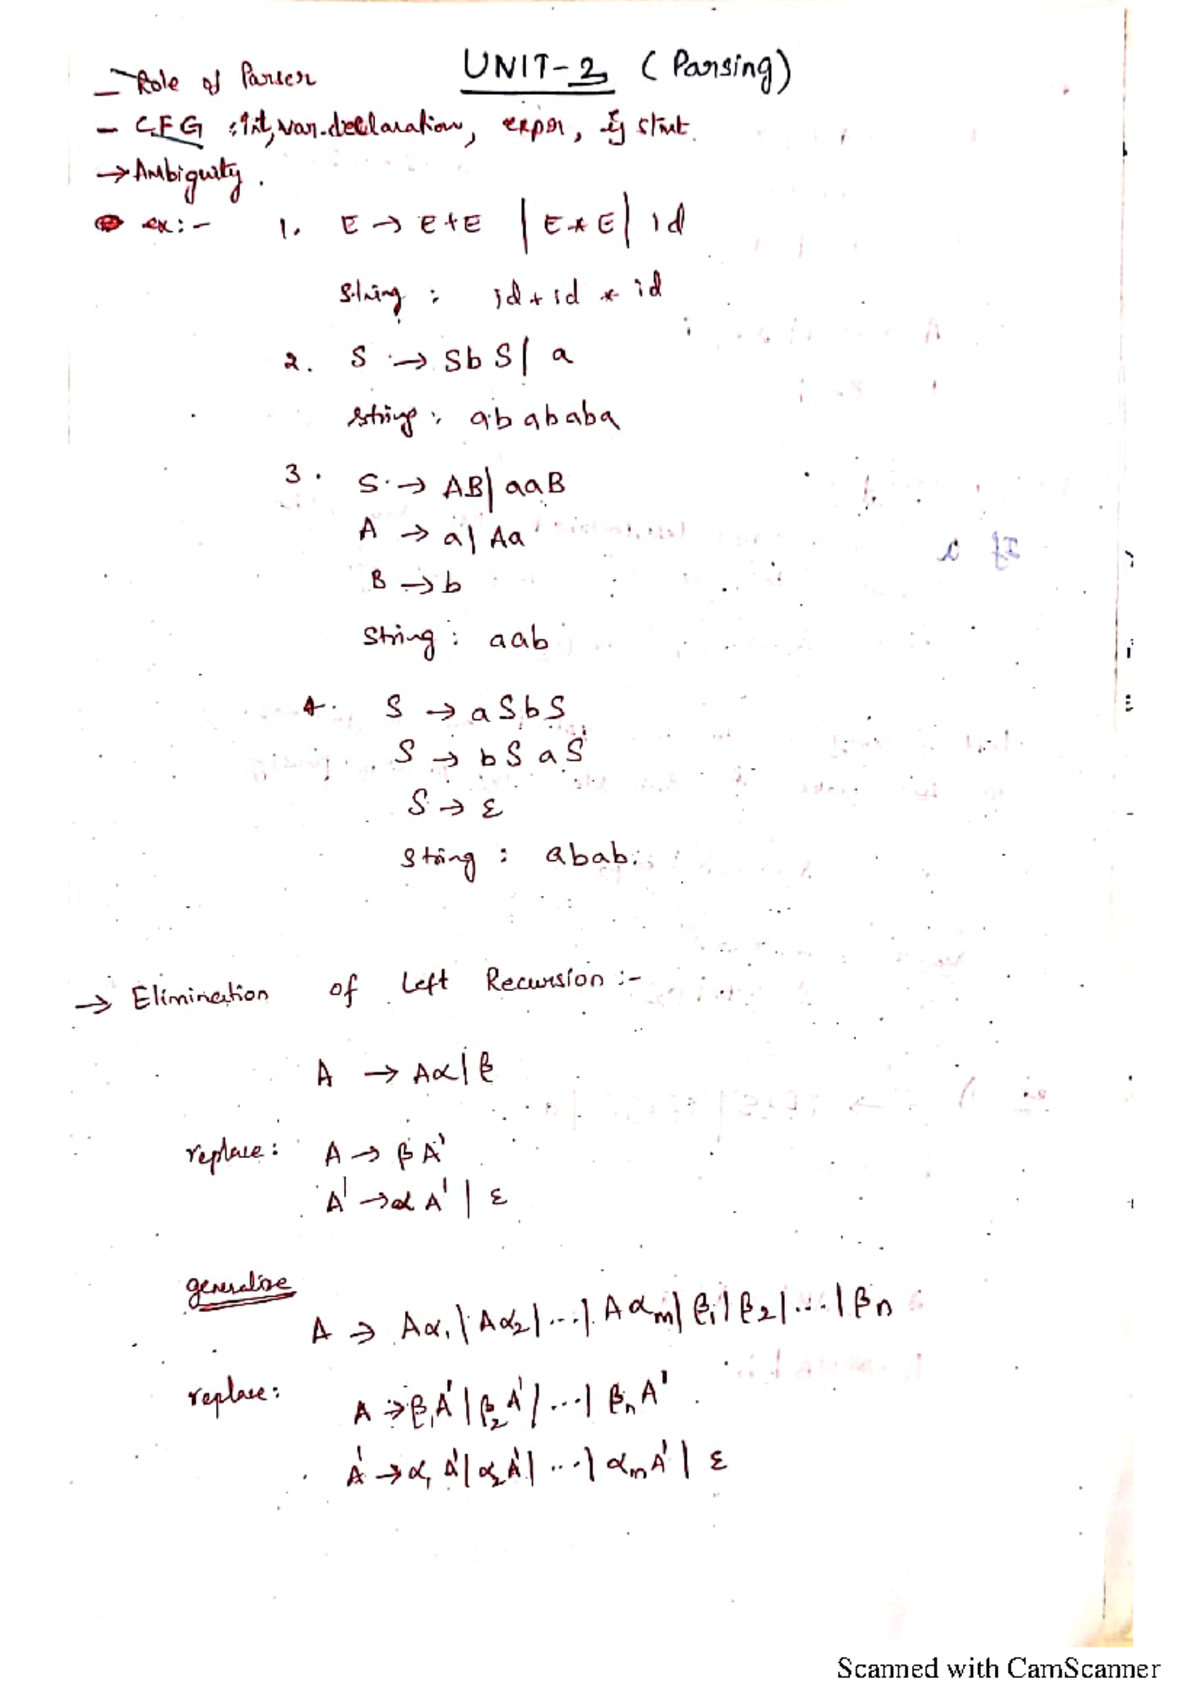 UNIT-2 (Parsing)
- Role of Parser
- CFG : var.declaration, expr, if stmt.
→ Ambiguity.
ex:- 1. E → E+E | E*E | id
String : id + id * id
2. S → SbS | a
String : abababa
3. S → AB | aaB
A → a | Aa
B → b
String : aab
4. S → aSbS
S → bSaS
S → ε
String : abab.
→ Elimination of Left Recursion :-
A → Aα | β
replace : A → βA'
A' → αA' | ε
generalise
A → Aα₁ | Aα₂ | ... | Aαm | β₁ | β2 | ... | βn
replace : A → β₁A' | β₂A' | ... | βnA'
A' → α₁A' | α₂A' | ... | αmA' | ε
Scanned with CamScanner